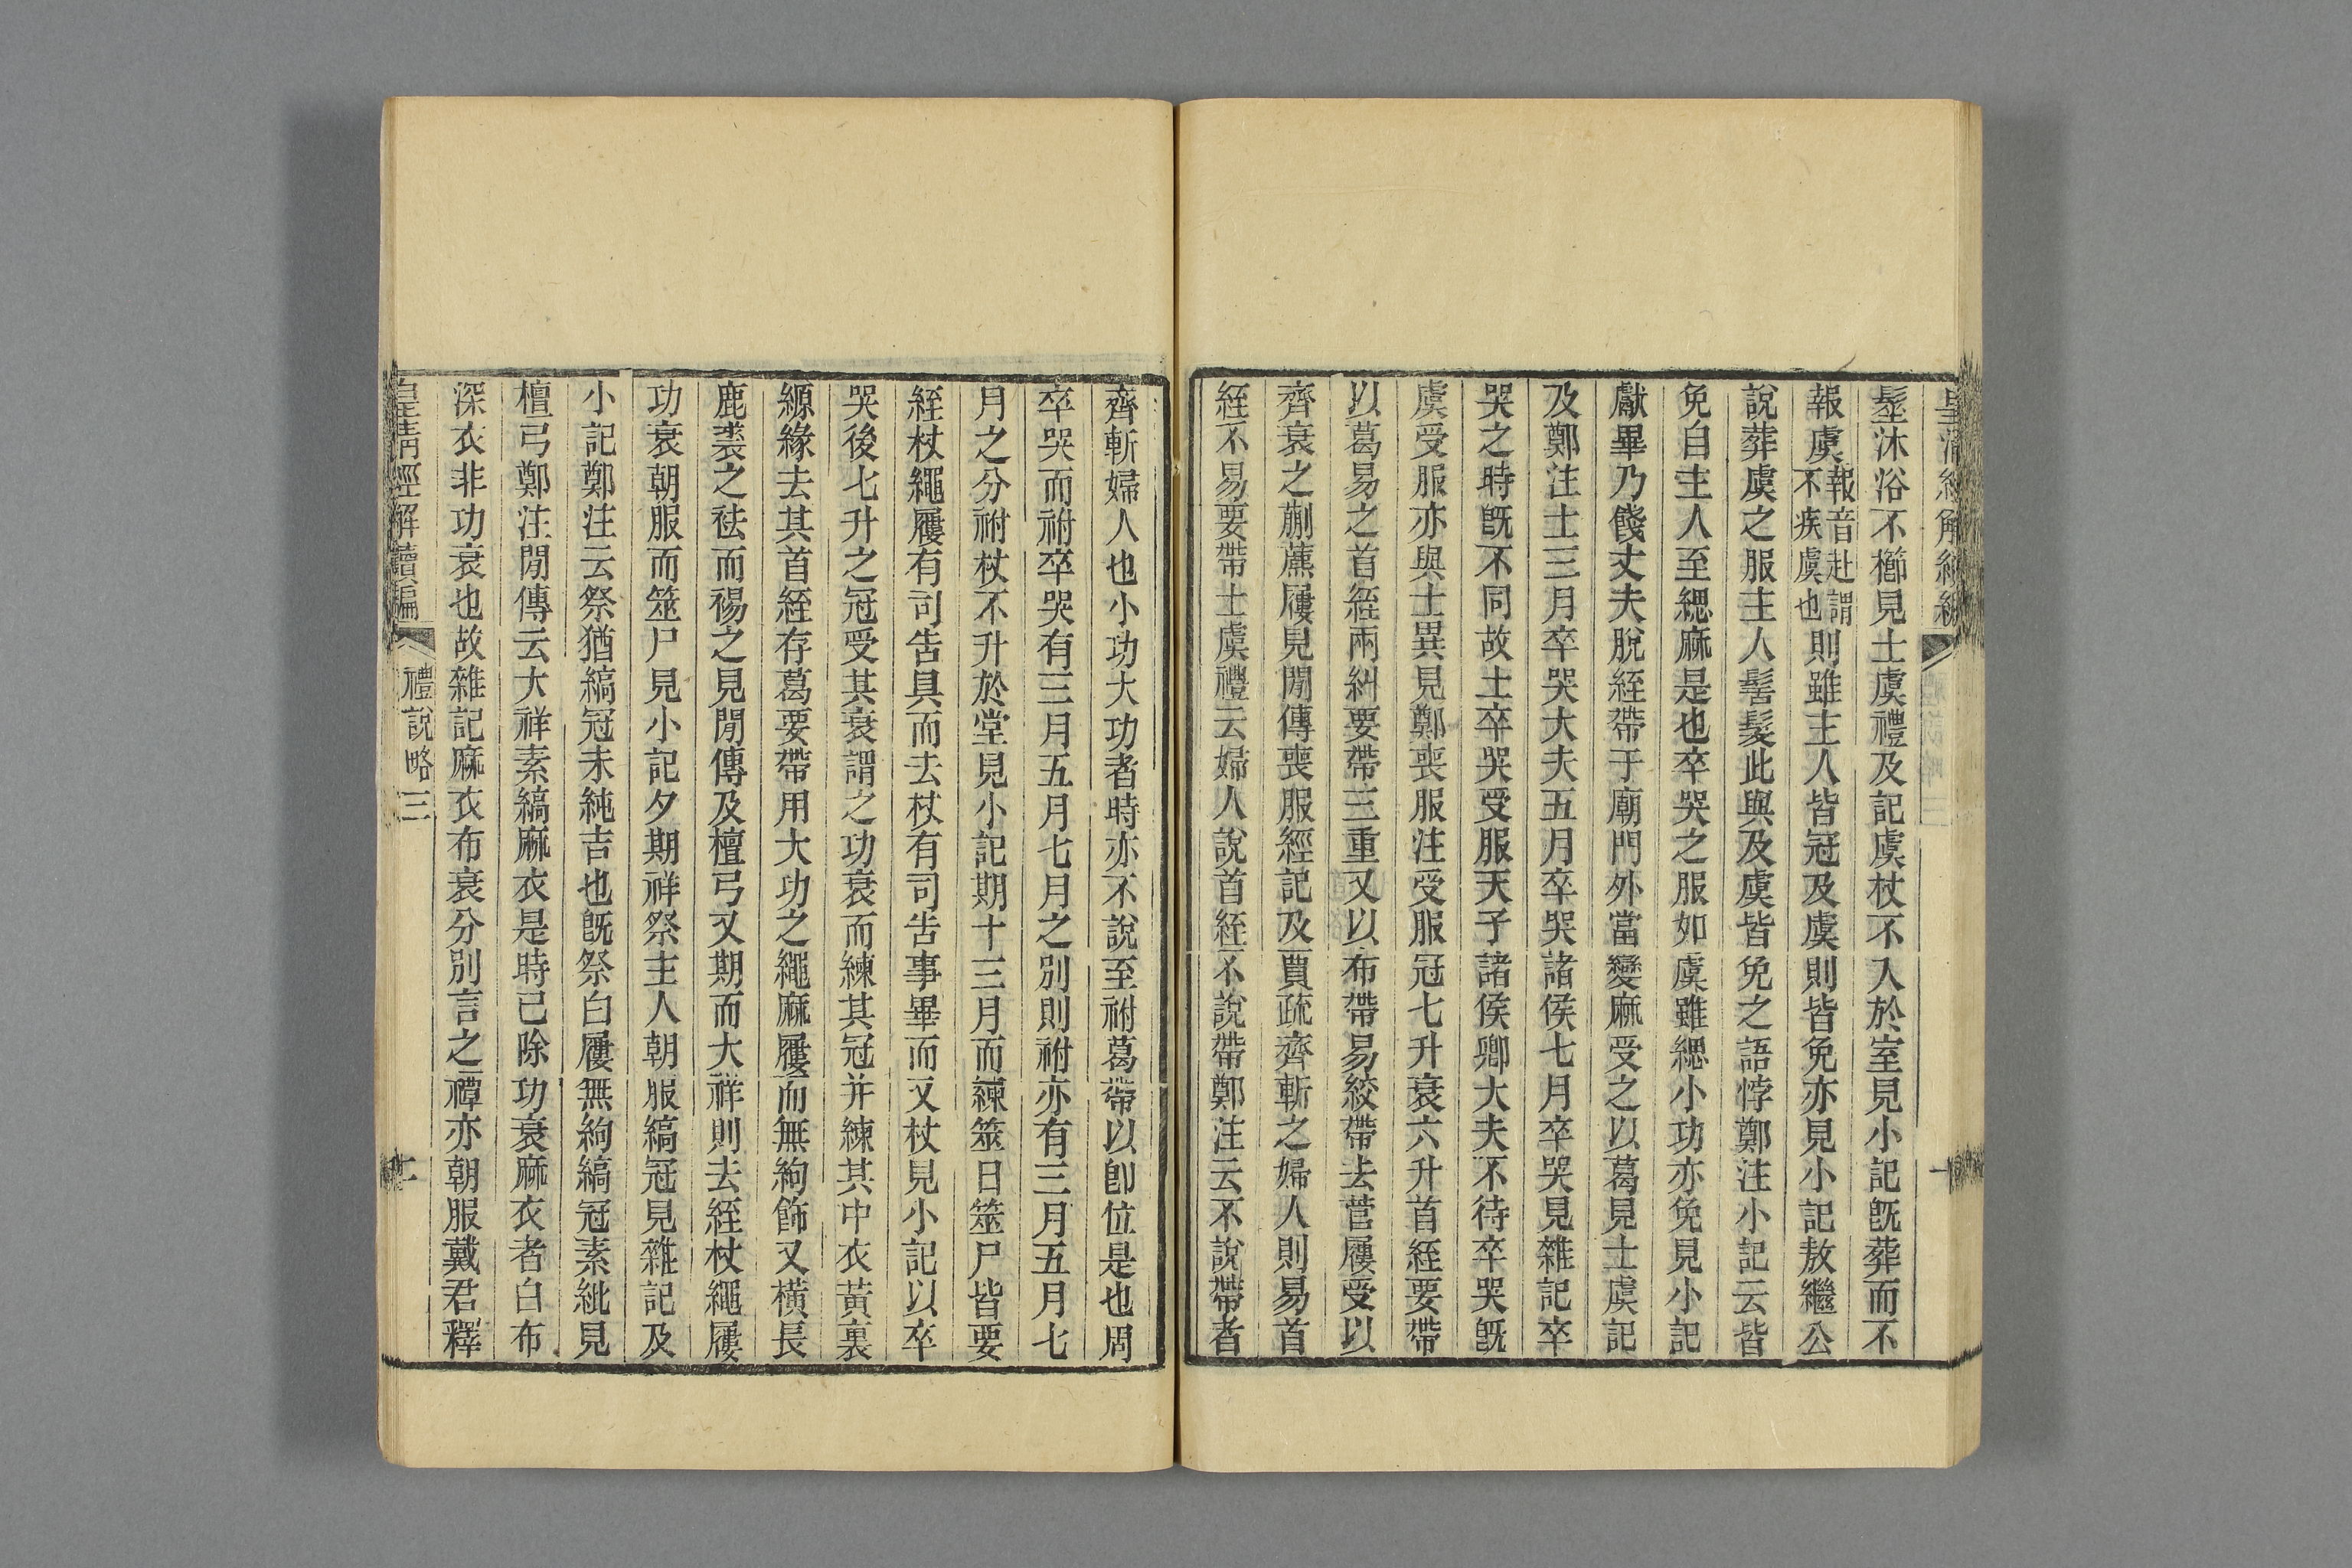 皇清經解續編
髽沐浴不櫛見士虞禮及記虞杖不入於室見小記旣葬而不
報虞報音赴謂不疾虞也則雖主人皆冠及虞則皆免亦見小記敖繼公
說葬虞之服主人髺髮此與及虞皆免之語悖鄭注小記云皆
免自主人至緦麻是也卒哭之服如虞雖緦小功亦免見小記
獻畢乃餞丈夫脫絰帶于廟門外當變麻受之以葛見士虞記
及鄭注士三月卒哭大夫五月卒哭諸侯七月卒哭見雜記卒
哭之時旣不同故士卒哭受服天子諸侯卿大夫不待卒哭旣
虞受服亦與士異見鄭喪服注受服冠七升衰六升首絰要帶
以葛易之首絰兩糾要帶三重又以布帶易絞帶去菅屨受以
齊衰之蒯藨屨見閒傳喪服經記及賈疏齊斬之婦人則易首
絰不易要帶士虞禮云婦人說首絰不說帶鄭注云不說帶者
齊斬婦人也小功大功者時亦不說至祔葛帶以卽位是也周
卒哭而祔卒哭有三月五月七月之別則祔亦有三月五月七
月之分祔杖不升於堂見小記期十三月而練筮日筮尸皆要
絰杖繩屨有司告具而去杖有司告事畢而又杖見小記以卒
哭後七升之冠受其衰謂之功衰而練其冠并練其中衣黃裏
縓緣去其首絰存葛要帶用大功之繩麻屨而無絇飾又橫長
鹿裘之袪而裼之見閒傳及檀弓又期而大祥則去絰杖繩屨
功衰朝服而筮尸見小記夕期祥祭主人朝服縞冠見雜記及
小記鄭注云祭猶縞冠未純吉也旣祭白屨無絇縞冠素紕見
檀弓鄭注閒傳云大祥素縞麻衣是時已除功衰麻衣者白布
深衣非功衰也故雜記麻衣布衰分別言之禫亦朝服戴君釋
皇清經解續編 禮說略三 二